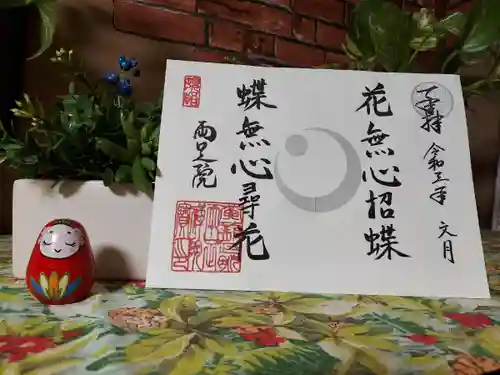 奉拝
令和三年
文月
花無心招蝶
蝶無心尋花
両足院